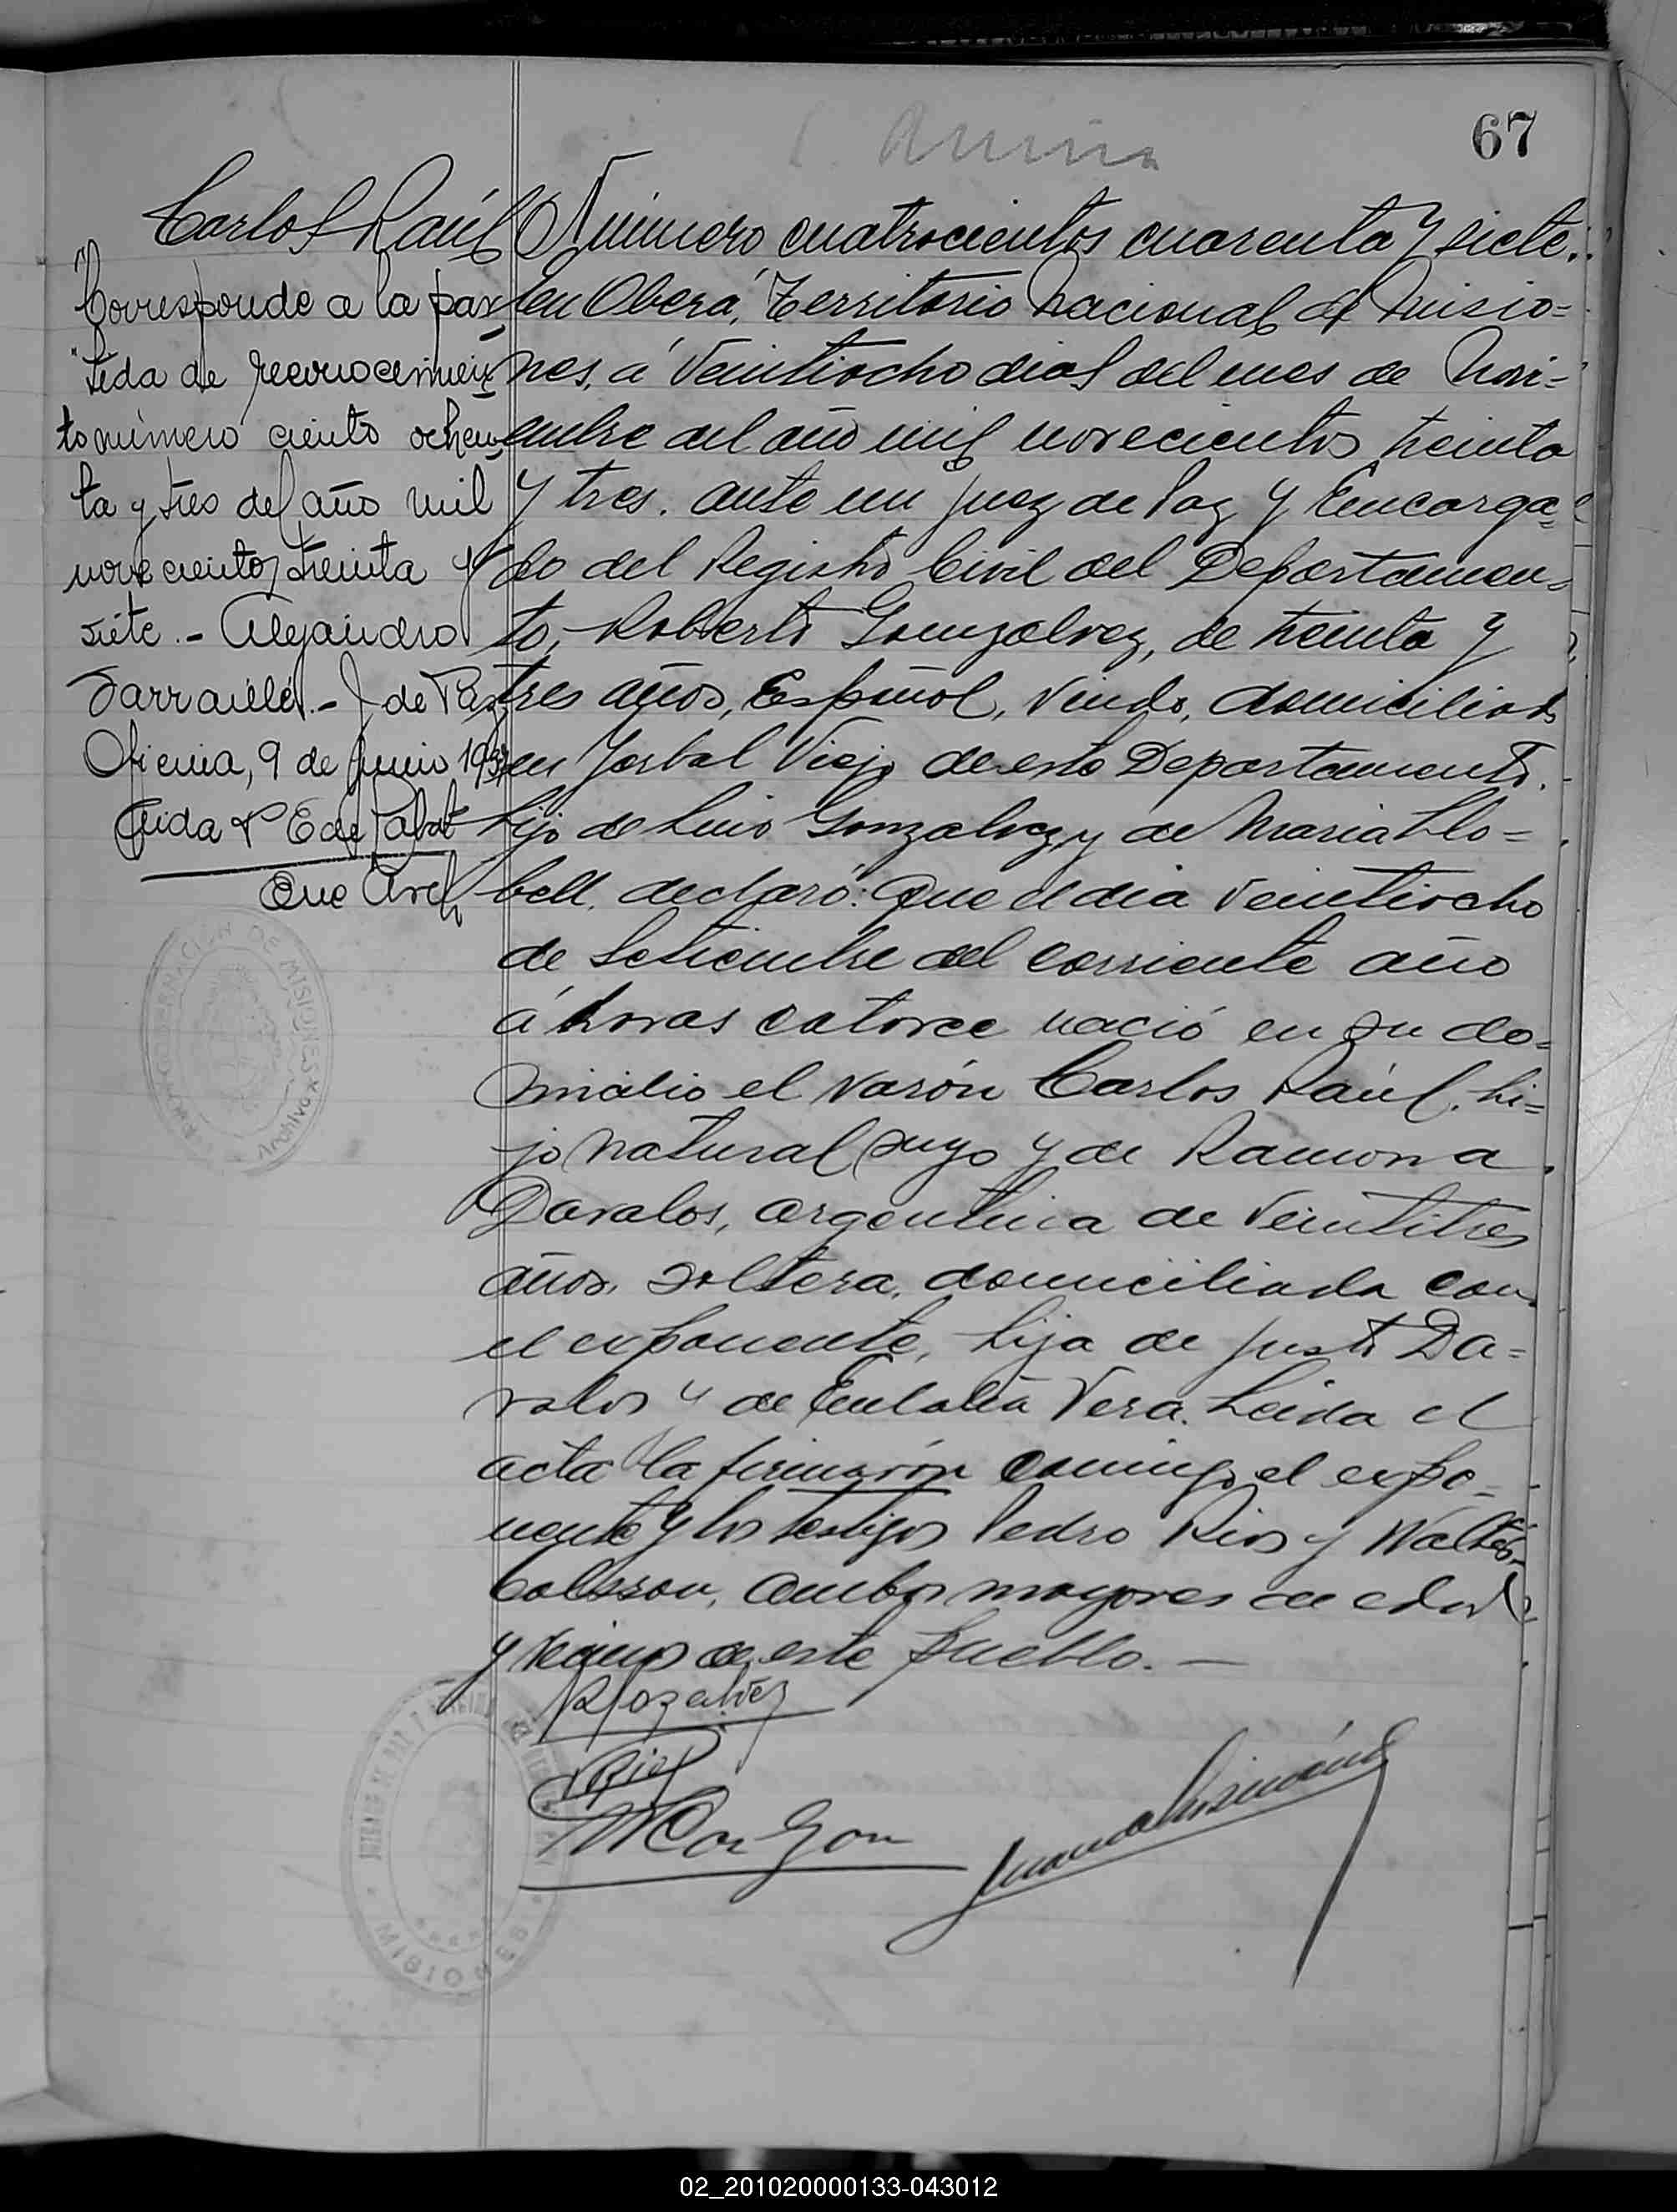 67
Carlos Raúl
Corresponde a la par
tida de reconocimien
to número ciento ochen
ta y tres del año mil
novecientos treinta y
siete.- Alejandro
J. de Paz
Oficina, 9 de Junio 1937
Número cuatrocientos cuarenta y siete.:
en Oberá, Territorio Nacional de Misio=
nes, á veintiocho dias del mes de Novi=
embre del año mil novecientos treinta
y tres. ante mi Juez de Paz y Encarga=
do del Registro Civil del Departamen=
to, Roberto Gomzalvez, de treinta y
tres años, Español, viudo, domiciliado
en Yerbal Viejo de este Departamento.
hijo de Luis Gonzalvez y de Maria Llo=
bell, declaró: Que el dia veintiocho
de Setiembre del corriente año
á horas catorce nació en su do=
micilio el varón Carlos Raúl, hi=
jo natural suyo y de Ramona
Davalos, argentina de veintitres
años, soltera, domiciliada con
el exponente, hija de Justo Da=
valos y de Eulalia Vera. Leida el
acta la firmarón conmigo el expo=
nente y los testigos Pedro Rios y Walter
Colsson, ambos mayores de edad
y vecinos de este pueblo.—
GOBERNACION DE MISIONES
Archivo
MISIONES
02_201020000133-043012